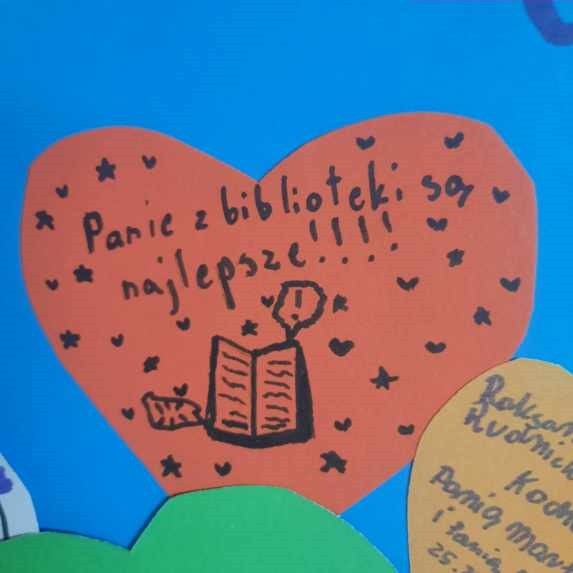 Panie z biblioteki są
najlepsze!!!!
!
Roksan
Rudnick
Koch
Panią Mar
i Panią
25.